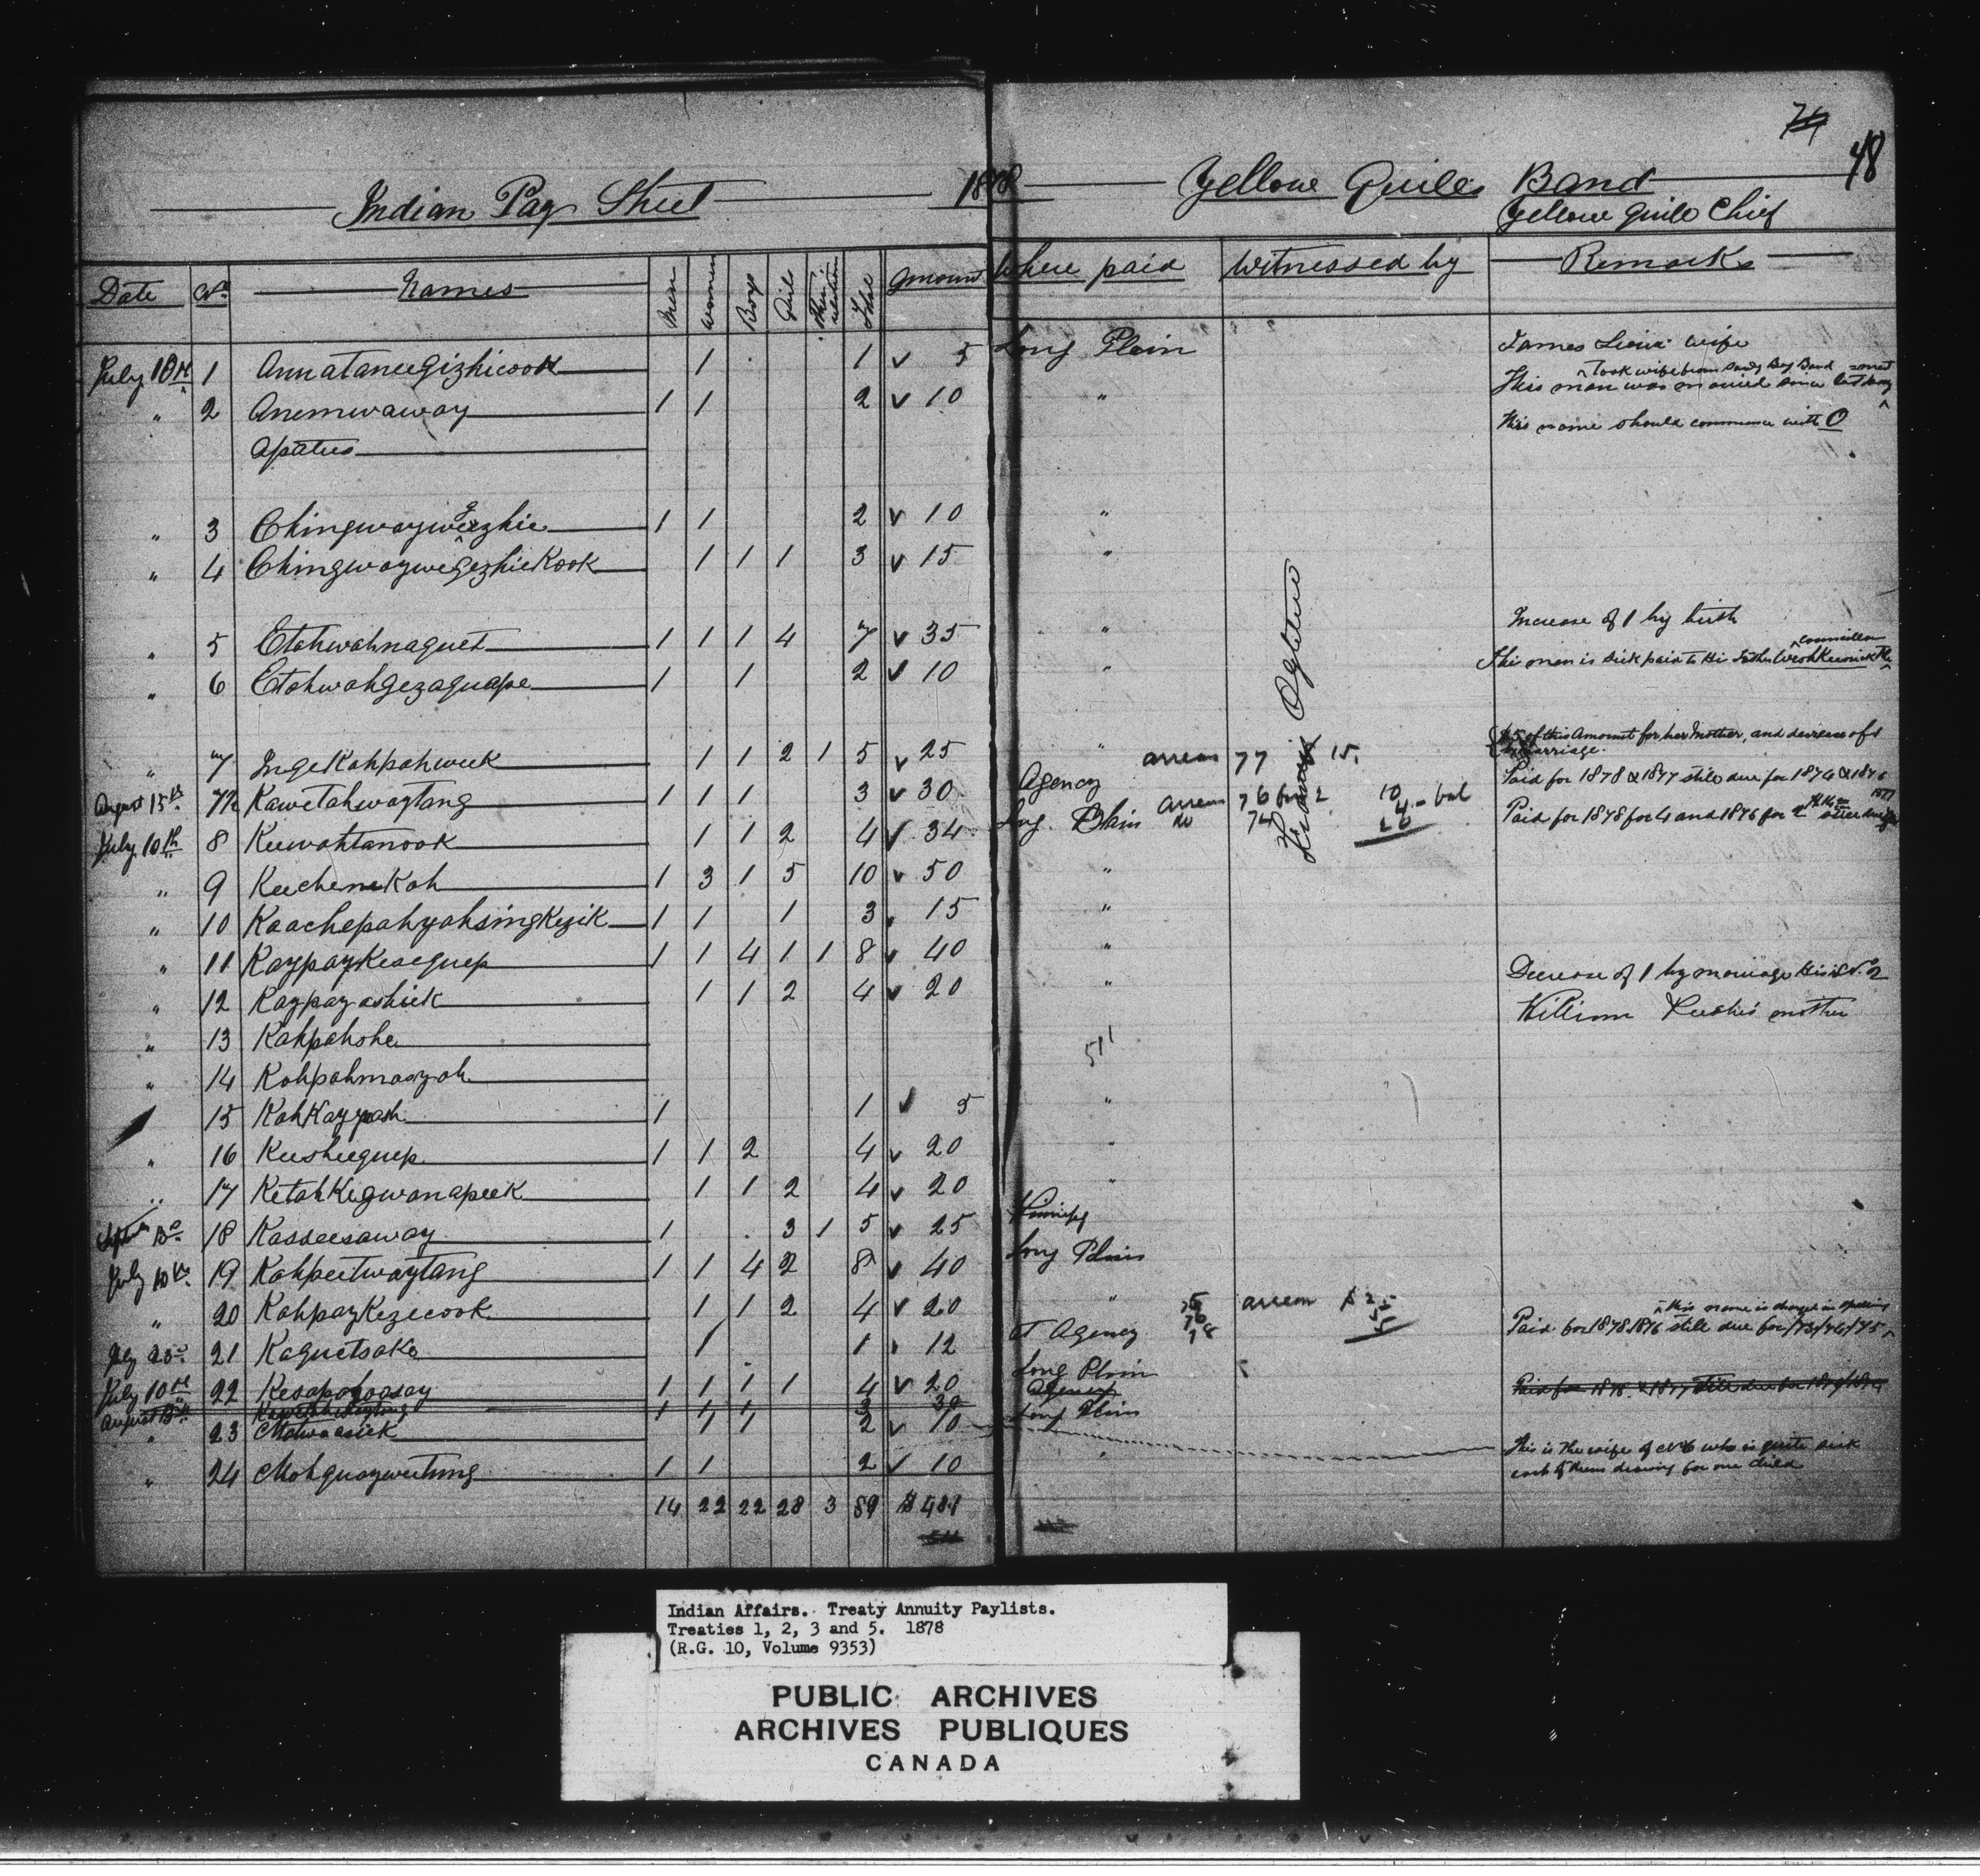 74
48
Indian Pay Sheet 1878 Yellow Quill's Band
Yellow Quill Chief
Date No. Names Men Women Boys Girls Total Amount Where paid Witnessed by Remarks
July 10th 1 Annataneegizhicook 1 1 ✓ 5 Long Plain James wife
Took wife from Sandy Bay Band
" 2 Anemwaway 1 1 2 ✓ 10 " This man was married since last
Apatus This name should commence with O
" 3 Chingwaywegezhie 1 1 2 ✓ 10 "
" 4 ChingwaywegezhieKook 1 1 1 3 ✓ 15 "
" 5 Etahwahnaquet 1 1 1 4 7 ✓ 35 " Increase of 1 by birth
councillor
" 6 Etahwahgezaguape 1 1 2 ✓ 10 " This man is sick paid to his Father
" 7 IngeKahpahweek 1 1 2 1 5 ✓ 25 " arrears 77 15. $5 of this Amount for her Mother, and decrease of 1 by marriage.
August 15th 7½ Kawetahwaytang 1 1 1 3 ✓ 30 Agency arrears 76 for 2 10 Paid for 1878 & 1877 still due for 1874 & 1876
July 10th 8 Keewahtanook 1 1 2 4 ✓ 34 Long Plain do 74 4 - bal Paid for 1878 for 4 and 1876 for 2
" 9 KeecheneKah 1 3 1 5 10 ✓ 50 "
" 10 KaachepahyahsingKezik 1 1 1 3 15 "
" 11 KaypayKeseguep 1 1 4 1 1 8 ✓ 40 " Decrease of 1 by marriage His is No. 2
" 12 Kaypayashiek 1 1 2 4 ✓ 20 " William mother
" 13 Kahpahohe
511
" 14 Kahpahmaayah
15 KahKayyash 1 1 ✓ 5 "
" 16 Keesheeguep 1 1 2 4 ✓ 20 "
" 17 KetahKegwanapeek 1 1 2 4 ✓ 20 "
18 Kasseesaway 1 3 1 5 ✓ 25 Winnipeg
July 10th 19 Kahpeetwaytang 1 1 4 2 8 ✓ 40 Long Plain
" 20 KahpayKezecook 1 1 2 4 ✓ 20 " this name is changed in spelling
21 Kaguetsake 1 1 12 at Agency 75 76 78 arrears $2 5 5 Paid for 1878 1876 still due for /73/74/75
July 10th 22 Kesapahoasay 1 1 1 1 4 ✓ 20 Long Plain Paid for 1878 & 1877 still due for
August 15th Kawetahwaytang 1 1 1 3 30 Agency
" 23 Mahwaasick 1 1 2 ✓ 10 Long Plain This is the wife of No 6 who is quite sick
each of them drawing for one child
" 24 Mahquaywetung 1 1 2 ✓ 10 "
14 22 22 28 3 89 $ 481
Indian Affairs. Treaty Annuity Paylists.
Treaties 1, 2, 3 and 5. 1878
(R.G. 10, Volume 9353)
PUBLIC ARCHIVES
ARCHIVES PUBLIQUES
CANADA